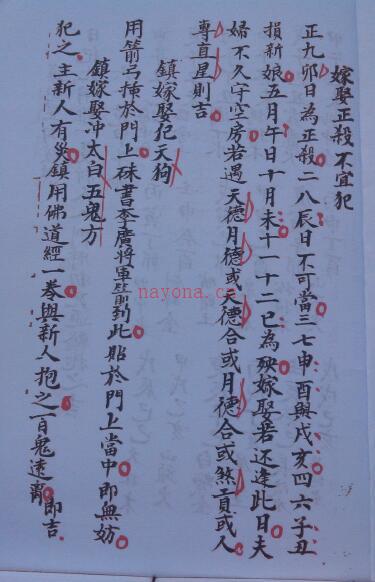 嫁娶正殺不宜犯
正九卯日為正殺二八辰日不可當三七申酉與戌亥四六子丑
損新娘五月午日十月未十一十二巳為殃嫁娶若还逢此日夫
婦不久守空房若遇天德月德或天德合或月德合或煞貢或人
專直星則吉
鎮嫁娶犯天狗
用箭弓揷於門上硃書李廣將軍箭到此貼於門上當中即無妨
鎮嫁娶冲太白五鬼方
犯之主新人有災鎮用佛道經一卷與新人抱之百鬼遠離即吉
nayona.cn